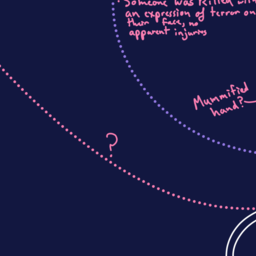 Someone was killed with
an expression of terror on
their face, no
apparent injuries
Mummified
hand?
?